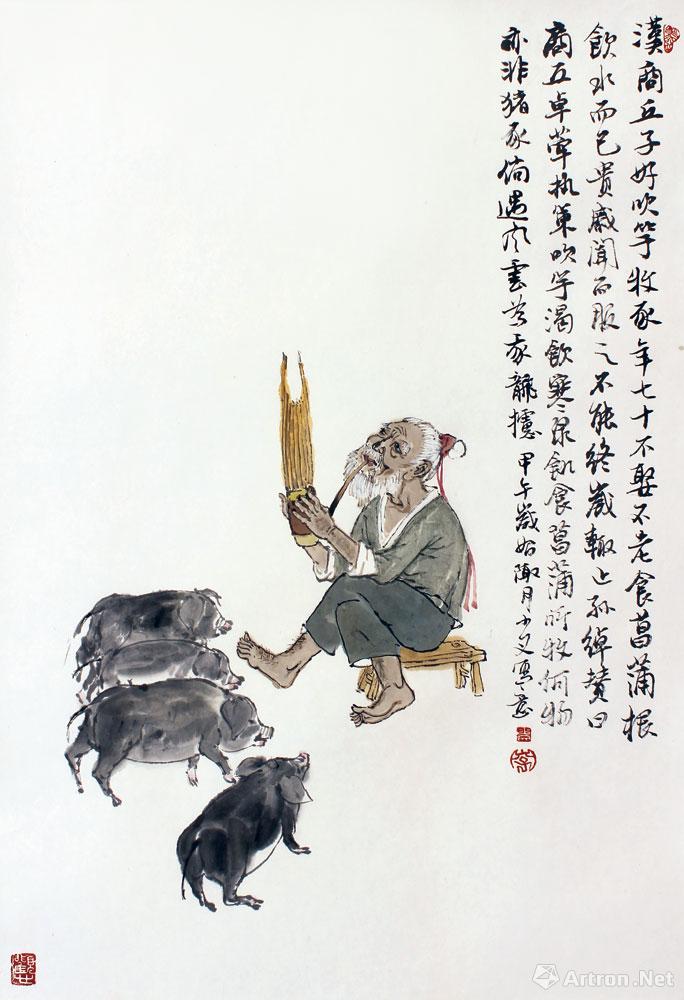 漢商丘子好吹竽牧豕年七十不娶不老食菖蒲根
飲水而已貴戚聞而服之不能終歲輒止孫綽贊曰
商丘卓犖執策吹竽渴飲寒泉飢食菖蒲所牧何物
亦非猪豕倘遇風雲為我龍攄 甲午歲始陬月少文寫意
Artron.Net